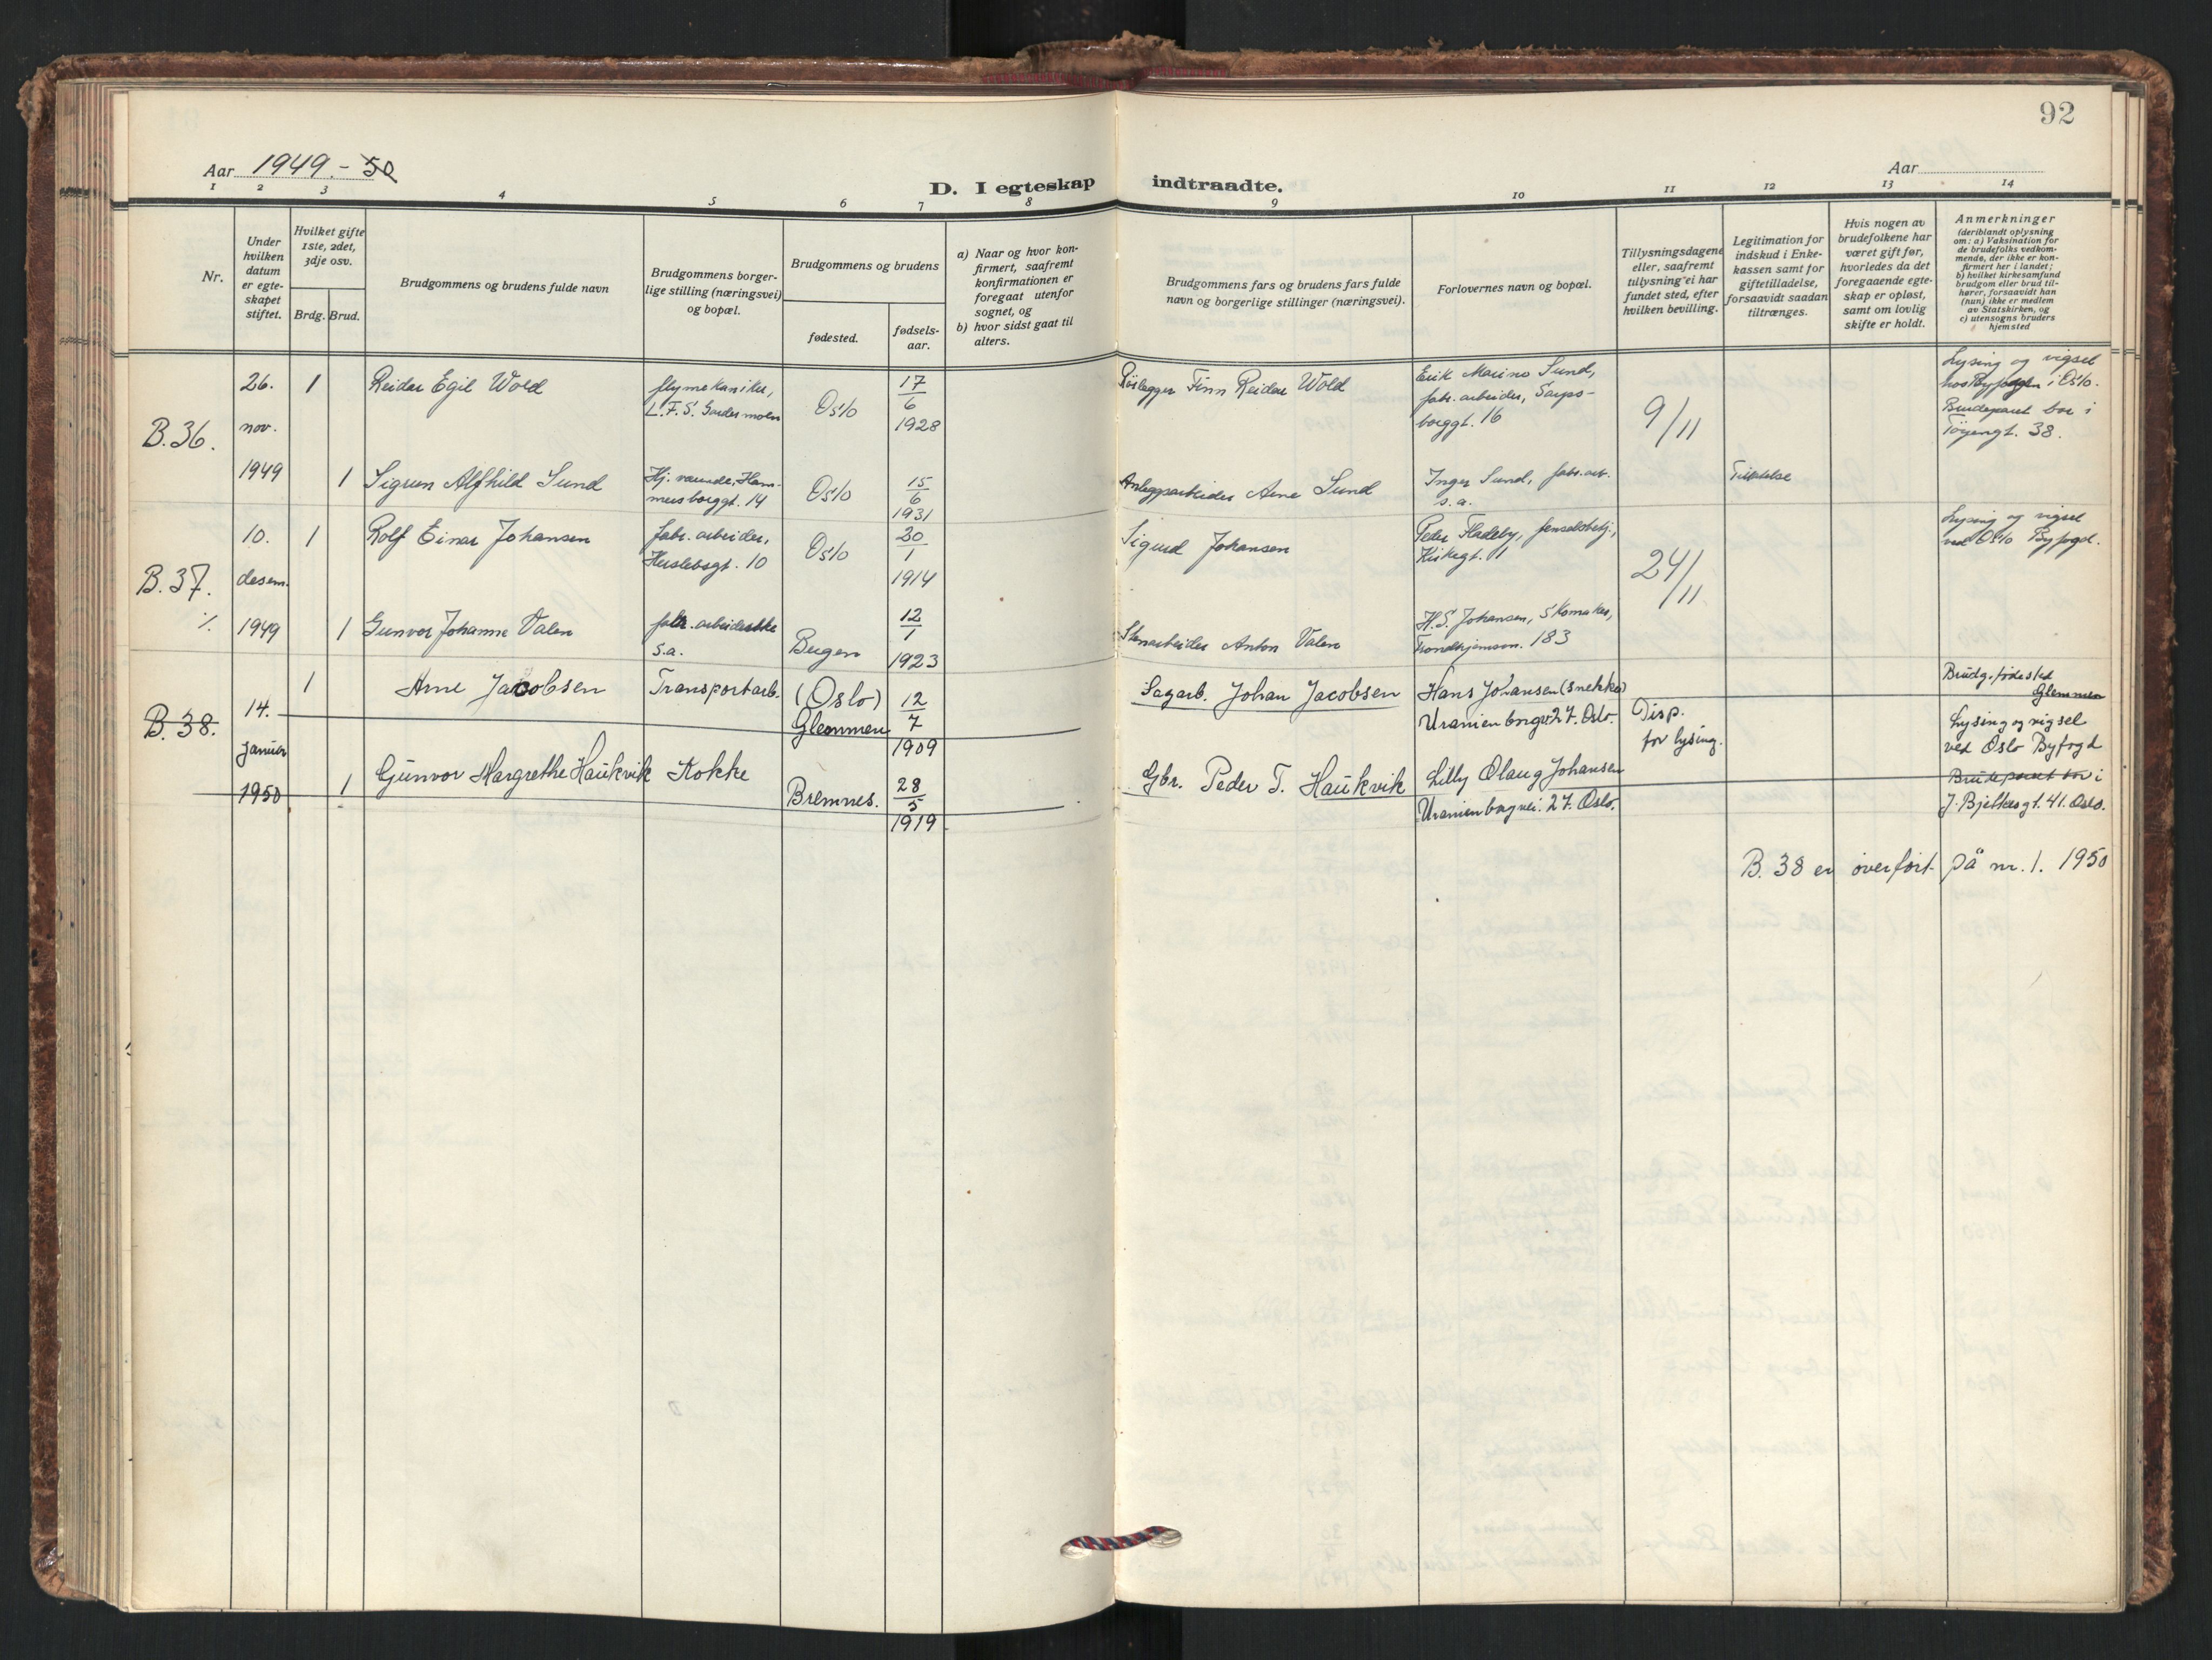 92
Aar 1949.-50
Aar
D. I egteskap indtraadte.
1 2 3 4 5 6 7 8 9 10 11 12 13 14
Nr.
Under
hvilken
datum
er egte-
skapet
stiftet.
Hvilket gifte
1ste, 2det,
3dje osv.
Brdg. Brud.
Brudgommens og brudens fulde navn
Brudgommens borger-
lige stilling (næringsvei)
og bopæl.
Brudgommens og brudens
fødested.
fødsels-
aar.
a) Naar og hvor kon-
firmert, saafremt
konfirmationen er
foregaat utenfor
sognet, og
b) hvor sidst gaat til
alters.
Brudgommens fars og brudens fars fulde
navn og borgerlige stillinger (næringsvei).
Forlovernes navn og bopæl.
Tillysningsdagene
eller, saafremt
tillysning ei har
fundet sted, efter
hvilken bevilling.
Legitimation for
indskud i Enke-
kassen samt for
giftetilladelse,
forsaavidt saadan
tiltrænges.
Hvis nogen av
brudefolkene har
været gift før,
hvorledes da det
foregaaende egte-
skap er opløst,
samt om lovlig
skifte er holdt.
Anmerkninger
(deriblandt oplysning
om: a) Vaksination for
de brudefolks vedkom-
mende, der ikke er kon-
firmert her i landet;
b) hvilket kirkesamfund
brudgom eller brud til-
hører, forsaavidt han
(hun) ikke er medlem
av Statskirken, og
c) utensogns bruders
hjemsted
B.36.
26.
nov.
1949
1
Reidar Egil Wold
flymekaniker,
L.F.S. Gardermoen
Oslo
17
6
1928
Rørlegger Finn Reidar Wold
Erik Marino Sund,
fabr. arbeider, Sarps-
borggt. 16
9/11
Lysing og vigsel
hos Byfogden i Oslo.
Brudeparet bor i
Tøyengt. 38.
1
Sigrun Alfhild Sund
Hj. værende, Ham-
mersborggt. 14
Oslo
15
6
1931
Anleggsarbeider Arne Sund
Inger Sund, fabr. arb.
s.a.
Tillatelse
B.37.
./.
10.
desem.
1949
1
Rolf Einar Johansen
fabr. arbeider,
Herslebsgt. 10
Oslo
20
1
1914
Sigurd Johansen
Peder Fladeby, fengselsbetj.,
Kirkegt. 1
24/11
Lysing og vigsel
ved Oslo Byfogd.
1
Gunvor Johanne Valen
fabr. arbeiderske
s.a.
Bergen
12
1
1923
Stenarbeider Anton Valen
H.S. Johansen, skomaker,
Trondhjemsvn. 183
B.38.
14.
januar
1950
1
Arne Jacobsen
Transportarb.
(Oslo)
Glemmen
12
7
1909
Sagarb. Johan Jacobsen
Hans Johansen (snekker)
Uranienborgv. 27. Oslo.
Disp.
for lysing.
Brudg. fødested
Glemmen
Lysing og vigsel
ved Oslo Byfogd
Brudeparet bor i
J. Bjelkesgt. 41. Oslo.
1
Gunvor Margrethe Haukvik
Kokke
Bremnes.
28
5
1919
Gbr. Peder T. Haukvik
Lilly Olaug Johansen
Uranienborgvei. 27. Oslo.
B. 38 er overført på nr. 1. 1950